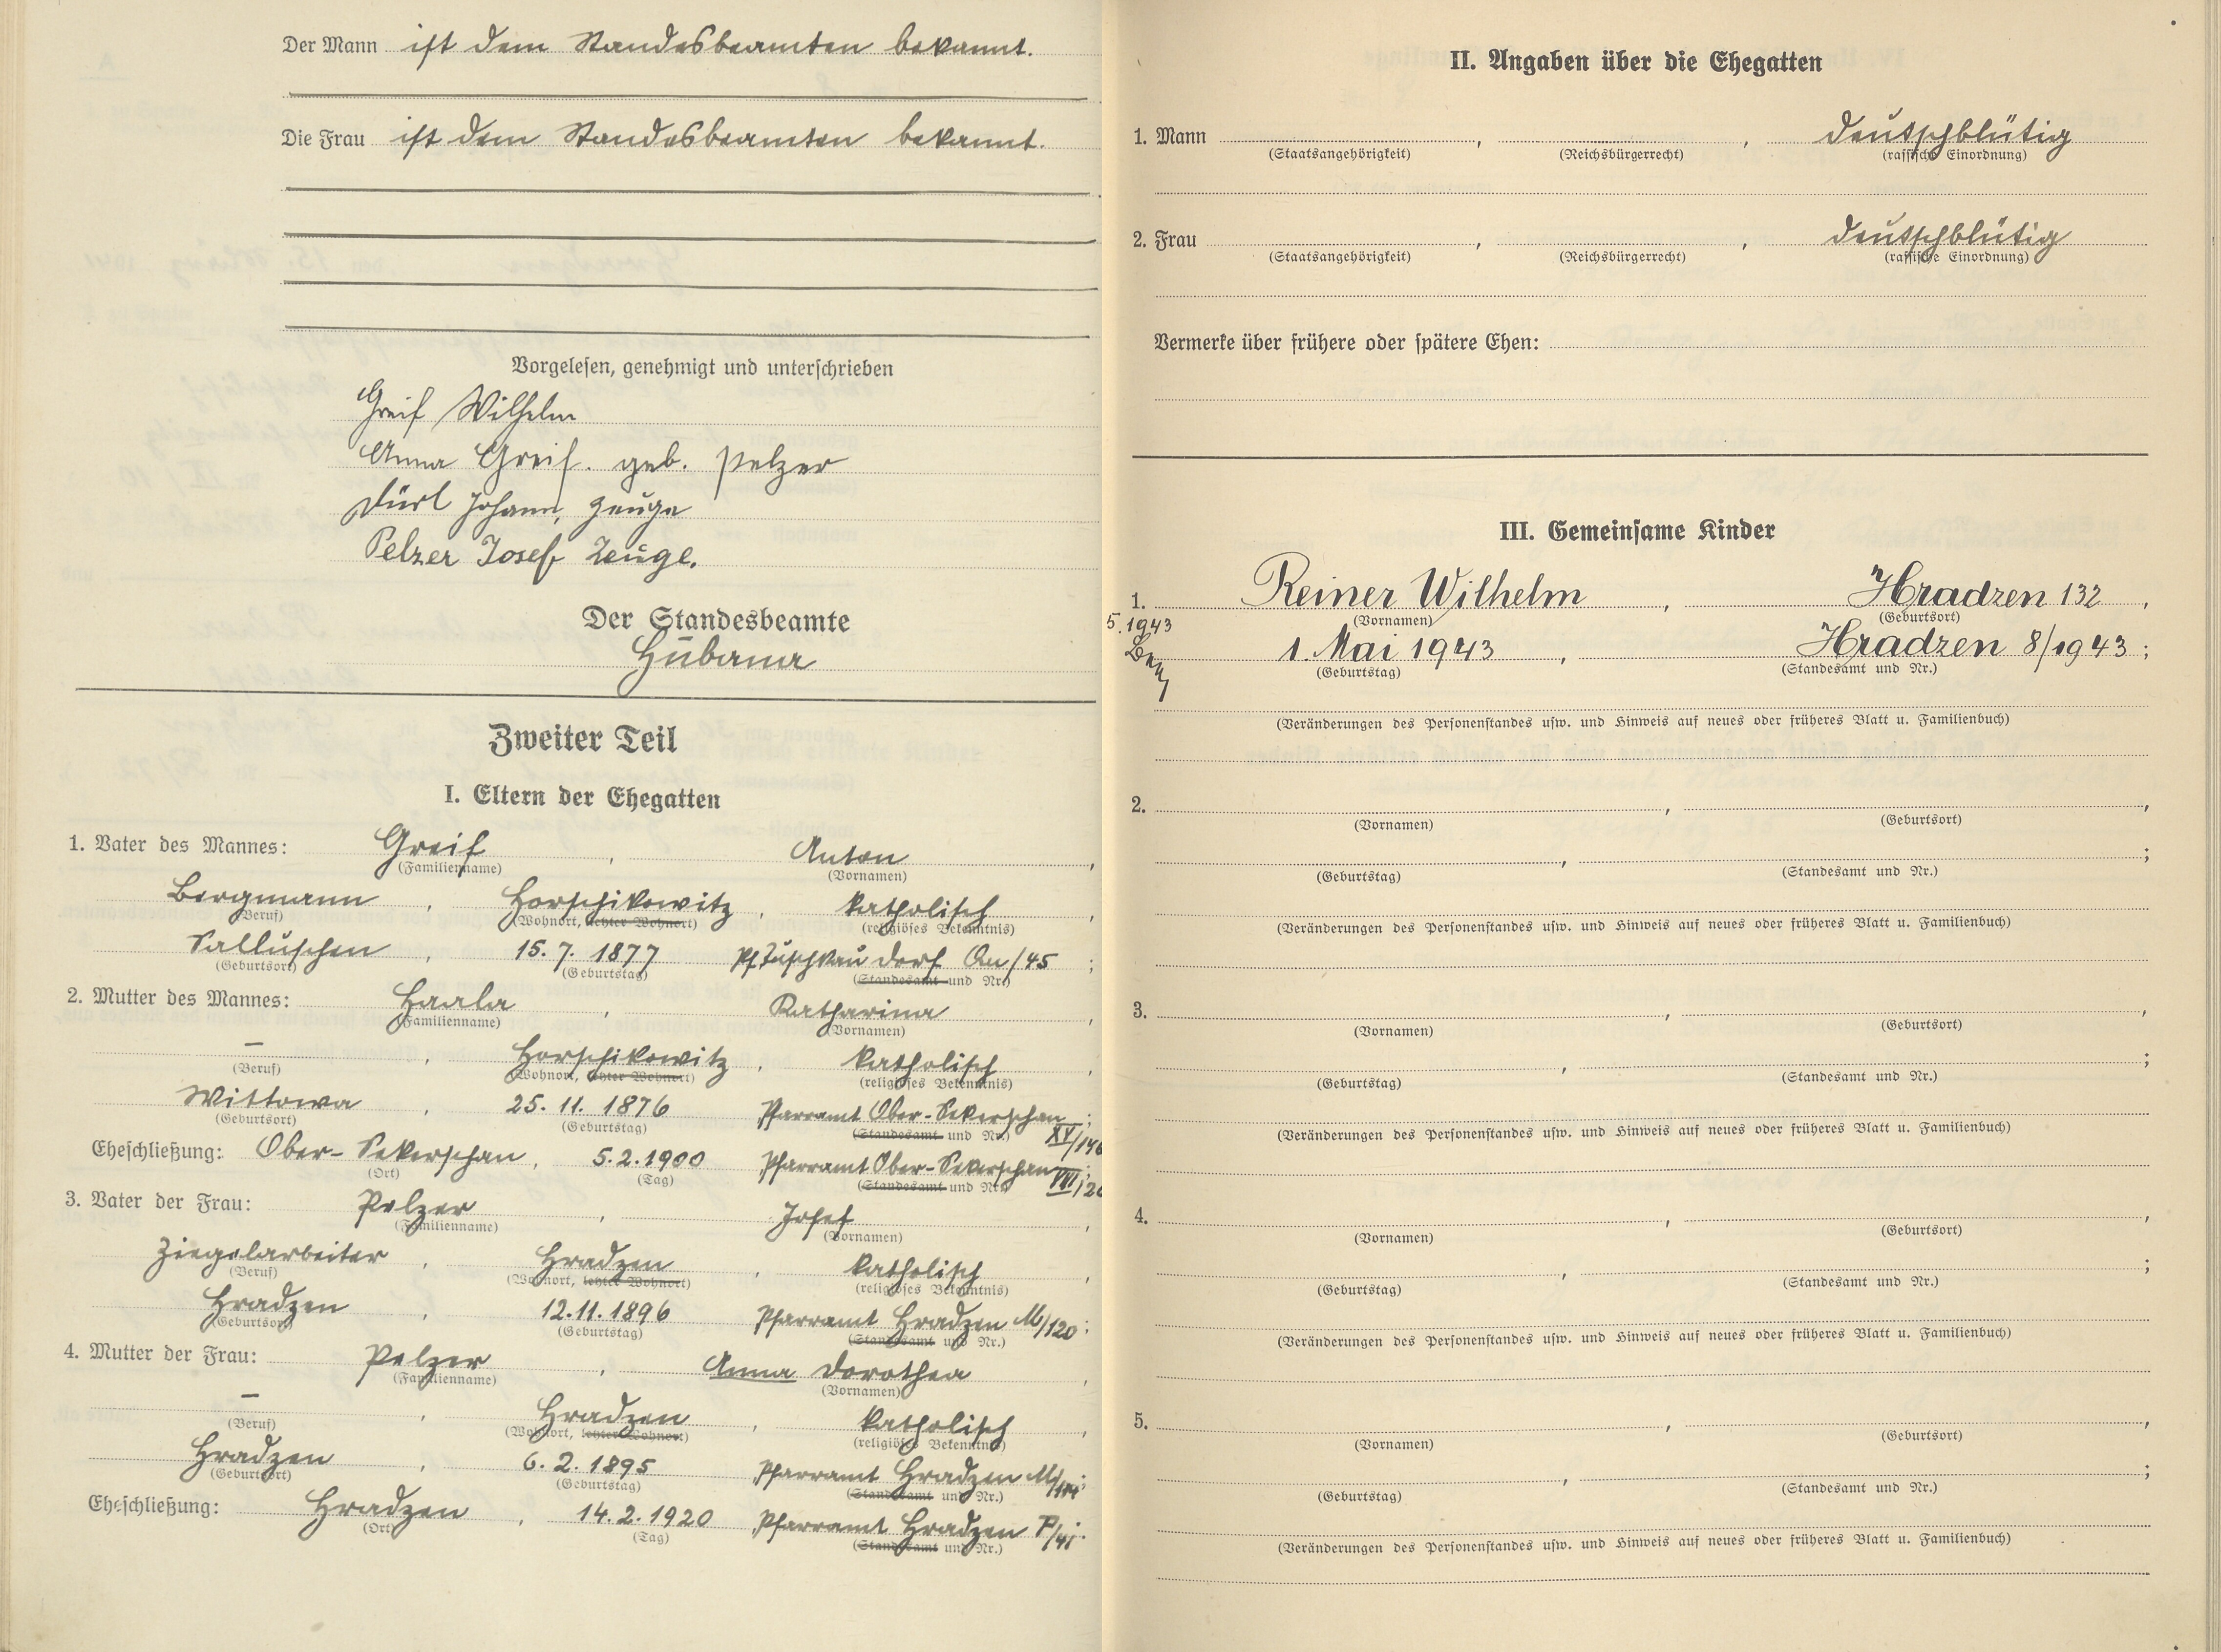 Der Mann ist dem Standesbeamten bekannt.
Die Frau ist dem Standesbeamten bekannt.
Vorgelesen, genehmigt und unterschrieben
Greif Wilhelm
Anna Greif. geb. Pelzer
Dürl Johann, Zeuge
Pelzer Josef Zeuge.
Der Standesbeamte
Hübana
Zweiter Teil
I. Eltern der Ehegatten
1. Vater des Mannes: Greif, Anton,
(Familienname) (Vornamen)
Bergmann, Horschikowitz, katholisch,
(Beruf) (Wohnort, letzter Wohnort) (religiöses Bekenntnis)
Salluschen, 15. 7. 1877 Pf. Tuschkau Dorf An/45;
(Geburtsort) (Geburtstag) (Standesamt und Nr.)
2. Mutter des Mannes: Haala, Katharina,
(Familienname) (Vornamen)
–, Horschikowitz, katholisch,
(Beruf) (Wohnort, letzter Wohnort) (religiöses Bekenntnis)
Wittowa, 25. 11. 1876 Pfarramt Ober-Sekerschan;
(Geburtsort) (Geburtstag) (Standesamt und Nr.) XV/146
Eheschließung: Ober-Sekerschan, 5. 2. 1900 Pfarramt Ober-Sekerschan;
(Ort) (Tag) (Standesamt und Nr.) VIII/20
3. Vater der Frau: Pelzer, Josef,
(Familienname) (Vornamen)
Ziegelarbeiter, Hradzen, katholisch,
(Beruf) (Wohnort, letzter Wohnort) (religiöses Bekenntnis)
Hradzen, 12. 11. 1896 Pfarramt Hradzen M/120;
(Geburtsort) (Geburtstag) (Standesamt und Nr.)
4. Mutter der Frau: Pelzer, Anna Dorothea,
(Familienname) (Vornamen)
–, Hradzen, katholisch,
(Beruf) (Wohnort, letzter Wohnort) (religiöses Bekenntnis)
Hradzen, 6. 2. 1895 Pfarramt Hradzen
(Geburtsort) (Geburtstag) (Standesamt und Nr.)
Eheschließung: Hradzen, 14. 2. 1920 Pfarramt Hradzen F/41.
(Ort) (Tag) (Standesamt und Nr.)
II. Angaben über die Ehegatten
1. Mann , , deutschblütig
(Staatsangehörigkeit) (Reichsbürgerrecht) (rassische Einordnung)
2. Frau , , deutschblütig
(Staatsangehörigkeit) (Reichsbürgerrecht) (rassische Einordnung)
Vermerke über frühere oder spätere Ehen:
III. Gemeinsame Kinder
1. Reiner Wilhelm, Hradzen 132,
5. 1943 (Vornamen) (Geburtsort)
1. Mai 1943, Hradzen 8/1943;
(Geburtstag) (Standesamt und Nr.)
(Veränderungen des Personenstandes usw. und Hinweis auf neues oder früheres Blatt u. Familienbuch)
2. , ,
(Vornamen) (Geburtsort)
, ;
(Geburtstag) (Standesamt und Nr.)
(Veränderungen des Personenstandes usw. und Hinweis auf neues oder früheres Blatt u. Familienbuch)
3. , ,
(Vornamen) (Geburtsort)
, ;
(Geburtstag) (Standesamt und Nr.)
(Veränderungen des Personenstandes usw. und Hinweis auf neues oder früheres Blatt u. Familienbuch)
4. , ,
(Vornamen) (Geburtsort)
, ;
(Geburtstag) (Standesamt und Nr.)
(Veränderungen des Personenstandes usw. und Hinweis auf neues oder früheres Blatt u. Familienbuch)
5. , ,
(Vornamen) (Geburtsort)
, ;
(Geburtstag) (Standesamt und Nr.)
(Veränderungen des Personenstandes usw. und Hinweis auf neues oder früheres Blatt u. Familienbuch)